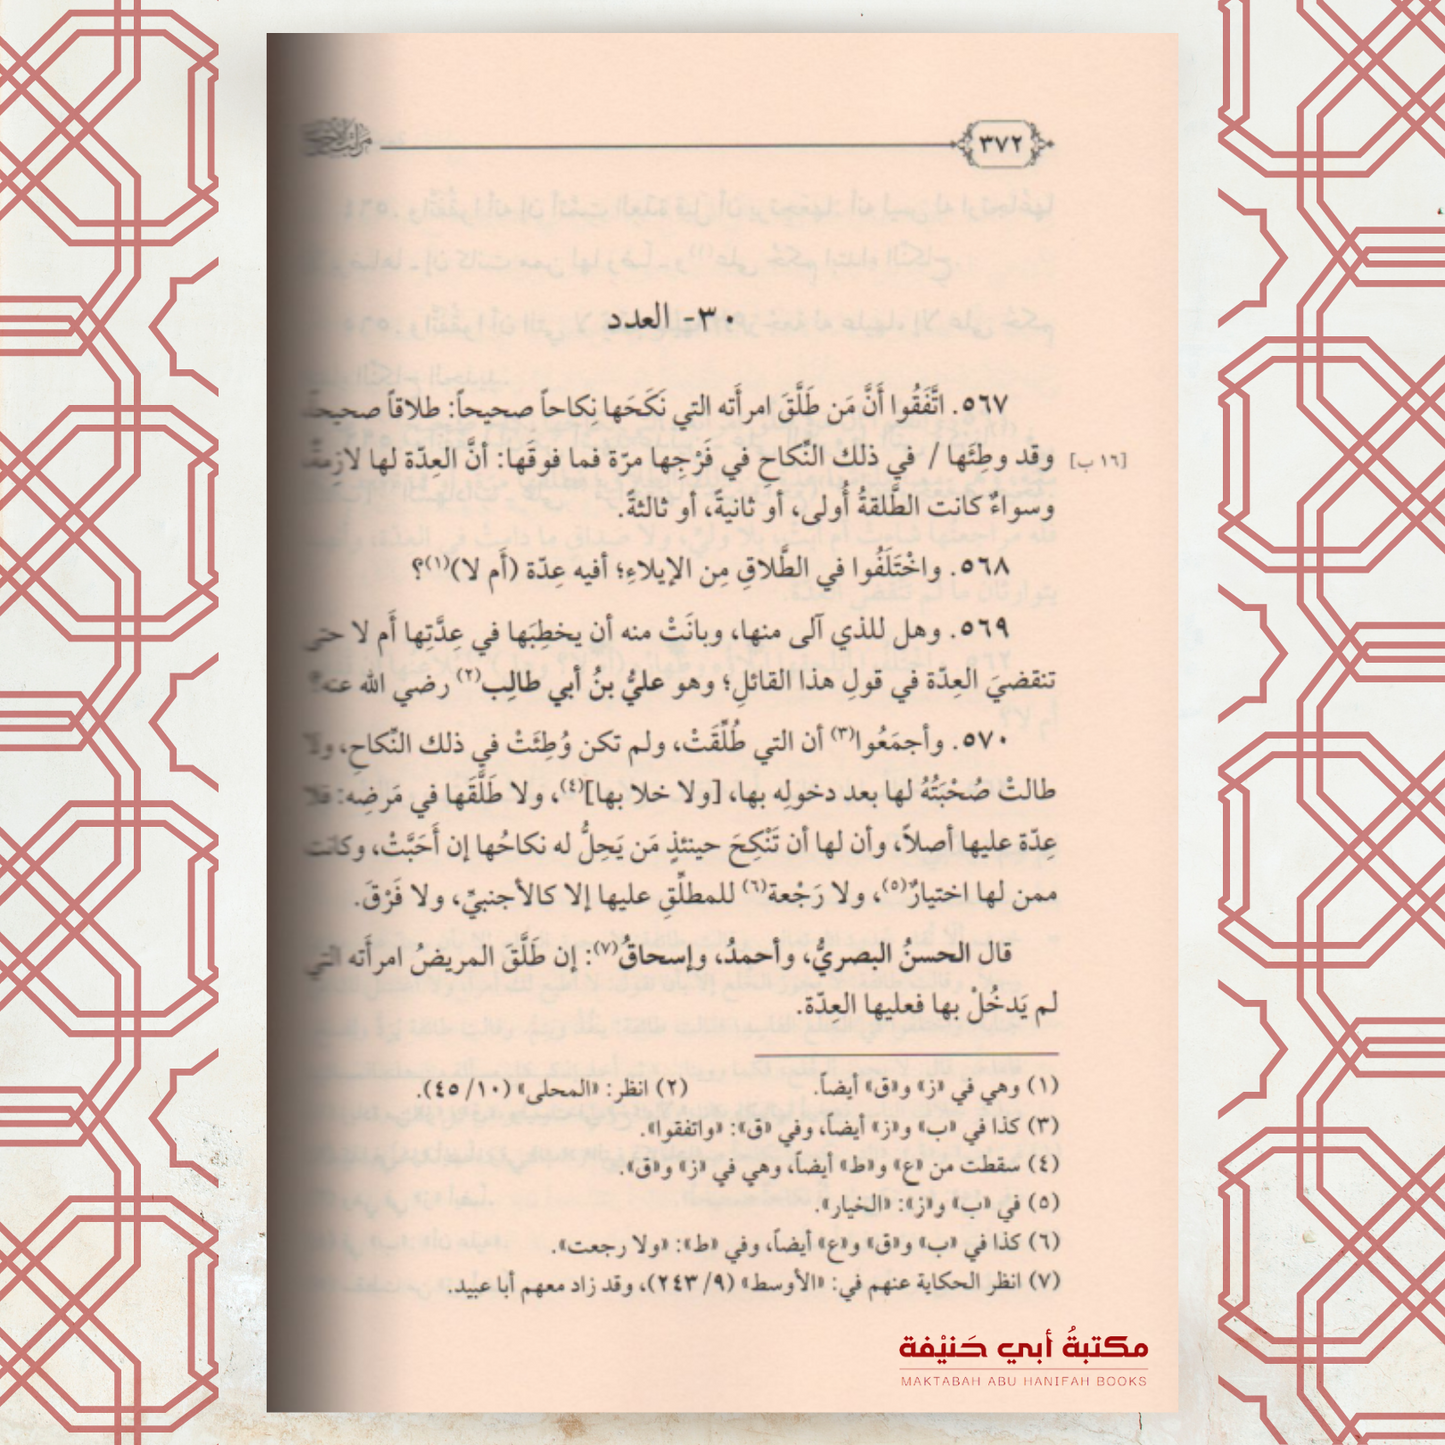 ٣٧٢
٣٠- العدد
٥٦٧. اتَّفَقُوا أَنَّ مَن طَلَّقَ امرأَته التي نَكَحَها نِكاحاً صحيحاً: طلاقاً صحيحاً،
[١٦ ب] وقد وطِئَها / في ذلك النِّكاحِ في فَرْجِها مرّة فما فوقَها: أنَّ العِدّة لها لازِمةٌ،
وسواءٌ كانت الطَّلقةُ أُولى، أو ثانيةً، أو ثالثةً.
٥٦٨. واخْتَلَفُوا في الطَّلاقِ مِن الإيلاءِ؛ أفيه عِدّة (أَم لا)(١)؟
٥٦٩. وهل للذي آلى منها، وبانَتْ منه أن يخطِبَها في عِدَّتِها أَم لا حتى
تنقضيَ العِدّة في قولِ هذا القائلِ؛ وهو عليُّ بنُ أبي طالِب(٢) رضي الله عنه؟
٥٧٠. وأجمَعُوا(٣) أن التي طُلِّقَتْ، ولم تكن وُطِئَتْ في ذلك النِّكاحِ، ولا
طالتْ صُحْبَتُهُ لها بعد دخولِه بها، [ولا خلا بها](٤)، ولا طَلَّقَها في مَرضِه: فلا
عِدّة عليها أصلاً، وأن لها أن تَنْكِحَ حينئذٍ مَن يَحِلُّ له نكاحُها إن أَحَبَّتْ، وكانت
ممن لها اختيارٌ(٥)، ولا رَجْعة(٦) للمطلِّقِ عليها إلا كالأجنبيِّ، ولا فَرْقَ.
قال الحسنُ البصريُّ، وأحمدُ، وإسحاقُ(٧): إن طَلَّقَ المريضُ امرأَته التي
لم يَدخُلْ بها فعليها العِدّة.
(١) وهي في «ز» و«ق» أيضاً. (٢) انظر: «المحلى» (١٠/ ٤٥).
(٣) كذا في «ب» و«ز» أيضاً، وفي «ق»: «واتفقوا».
(٤) سقطت من «ع» و«ط» أيضاً، وهي في «ز» و«ق».
(٥) في «ب» و«ز»: «الخيار».
(٦) كذا في «ب» و«ق» و«ع» أيضاً، وفي «ط»: «ولا رجعت».
(٧) انظر الحكاية عنهم في: «الأوسط» (٩/ ٢٤٣)، وقد زاد معهم أبا عبيد.
مكتبةُ أبي حَنيْفة
MAKTABAH ABU HANIFAH BOOKS